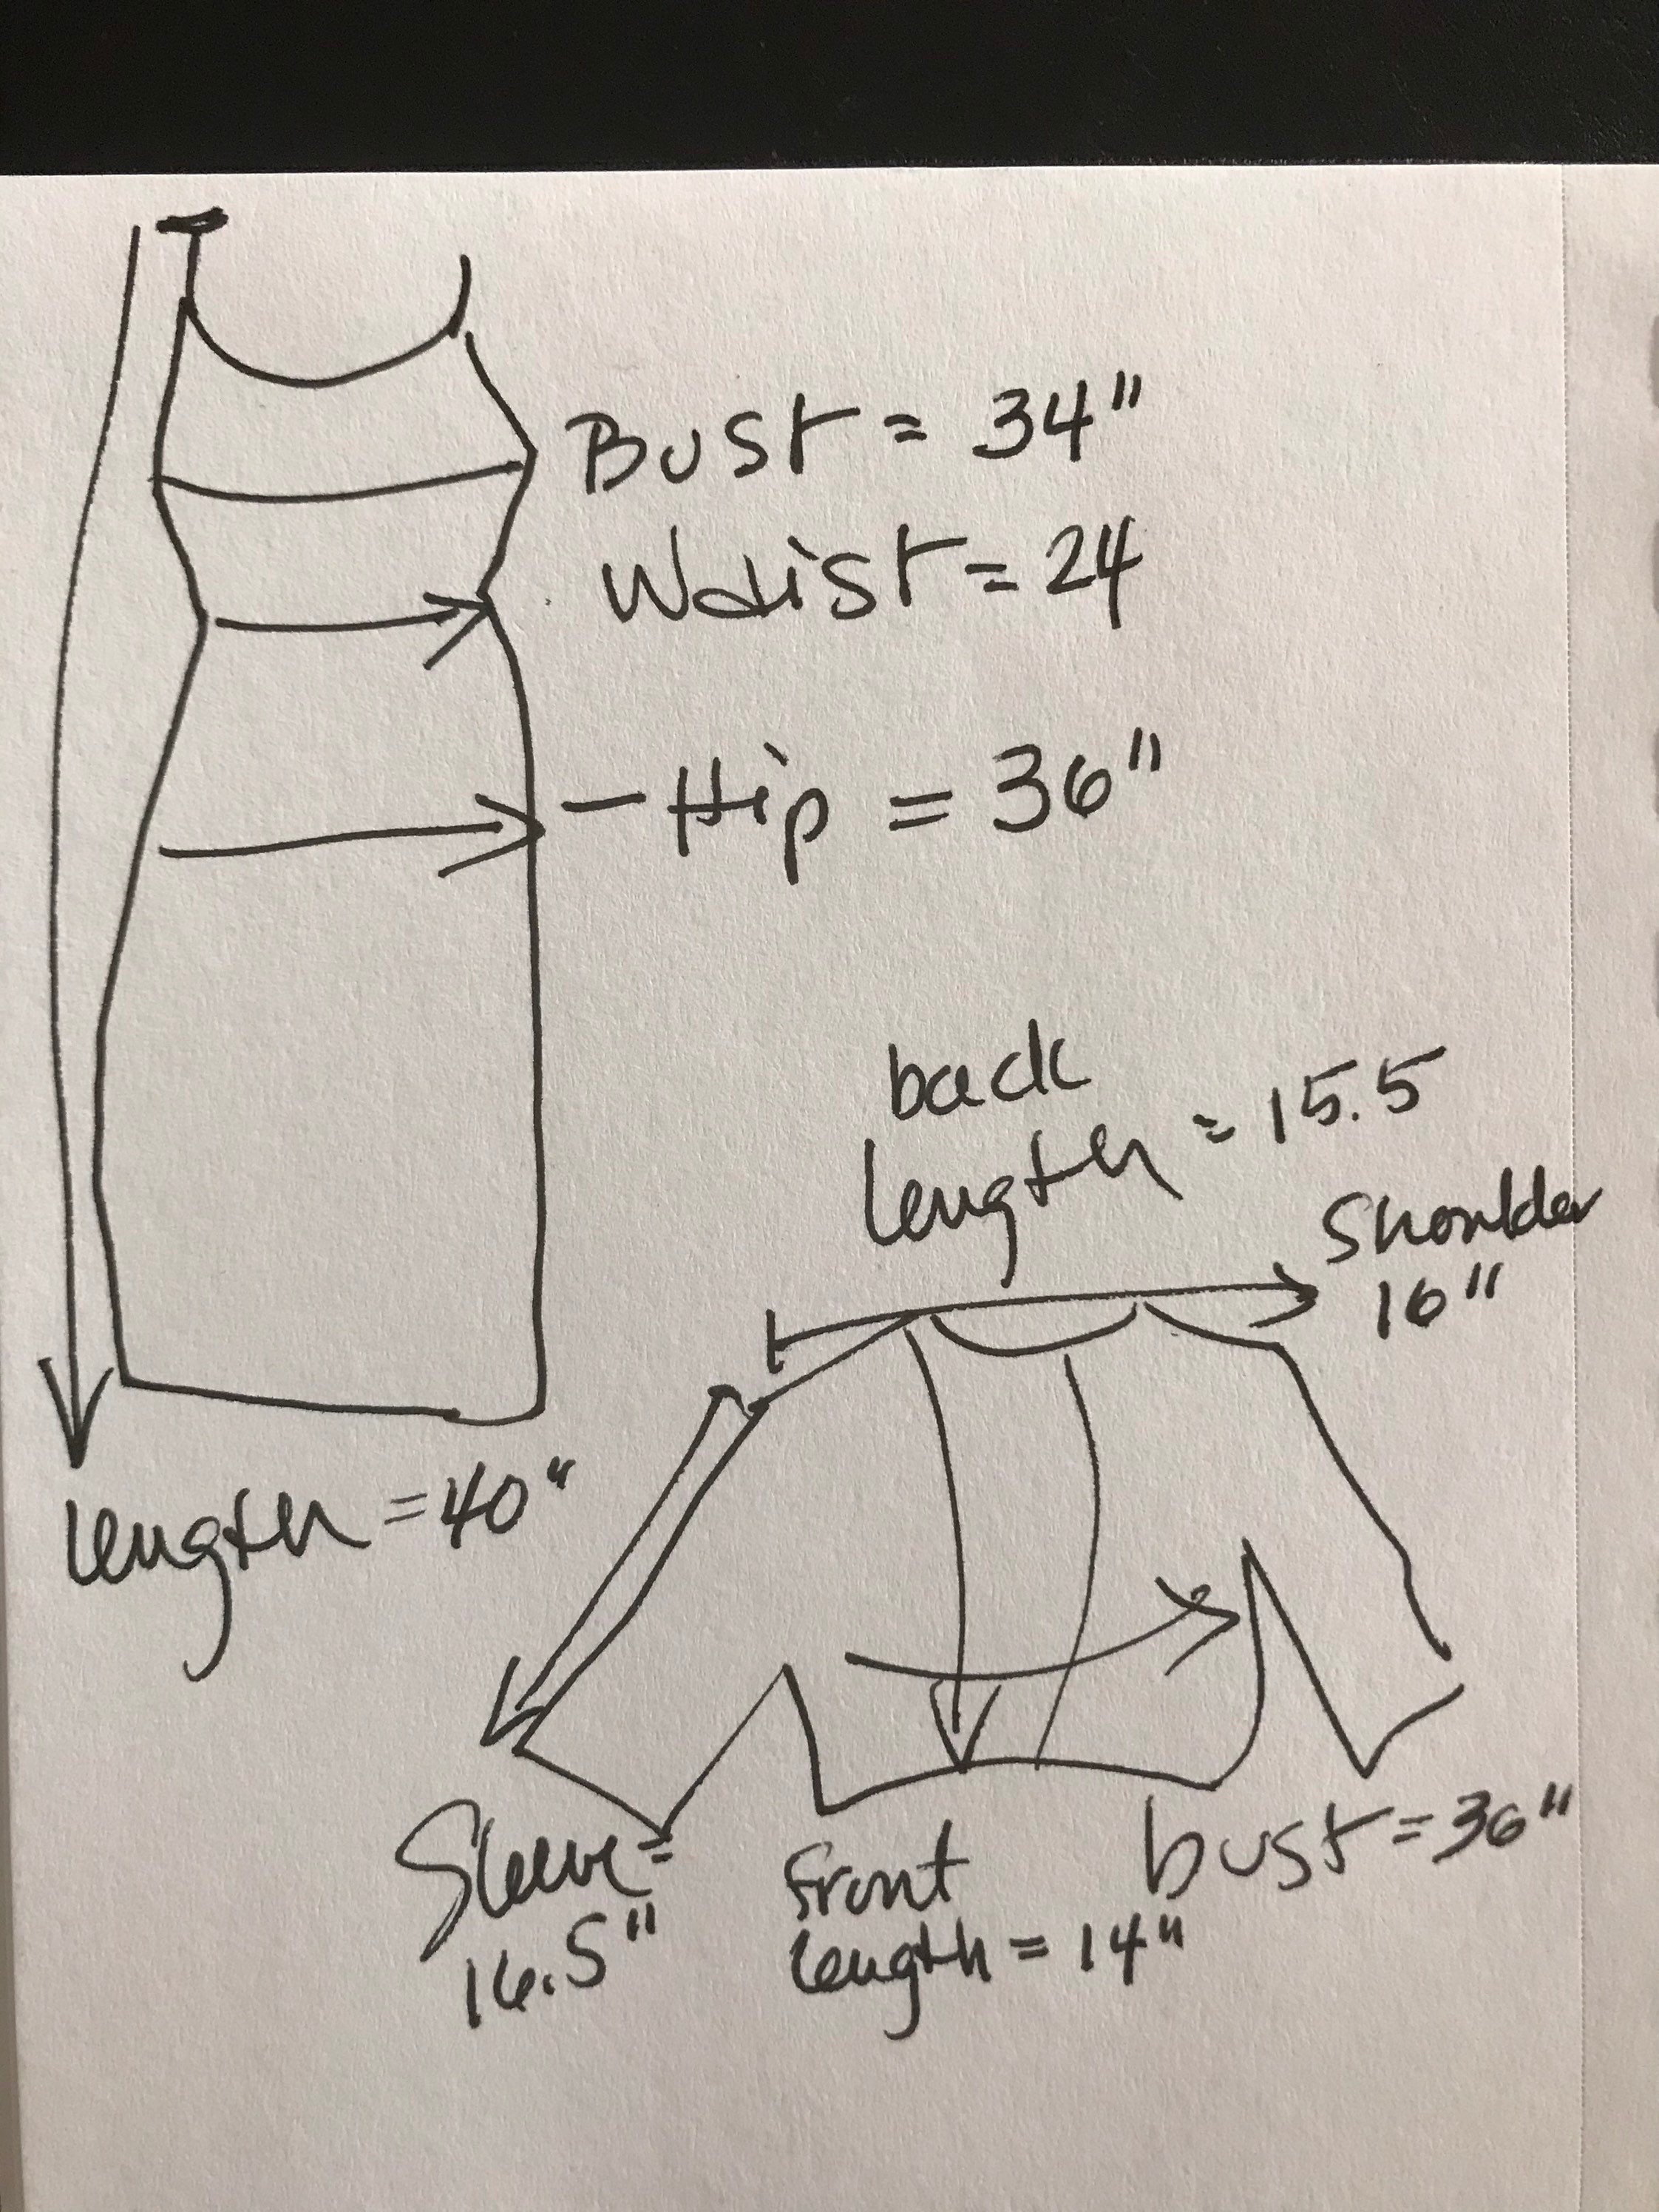 Bust = 34"
Waist = 24
- Hip = 36"
length = 40"
back
length = 15.5
Shoulder
16"
Sleeve =
16.5"
front
length = 14"
bust = 36"